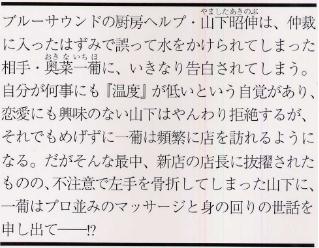 やましたあきのぶ
ブルーサウンドの厨房ヘルプ・山下昭伸は、仲裁
に入ったはずみで誤って水をかけられてしまった
おきないちほ
相手・奥菜一葡に、いきなり告白されてしまう。
自分が何事にも『温度』が低いという自覚があり、
恋愛にも興味のない山下はやんわり拒絶するが、
それでもめげずに一葡は頻繁に店を訪れるように
なる。だがそんな最中、新店の店長に抜擢された
ものの、不注意で左手を骨折してしまった山下に、
一葡はプロ並みのマッサージと身の回りの世話を
申し出て――!?